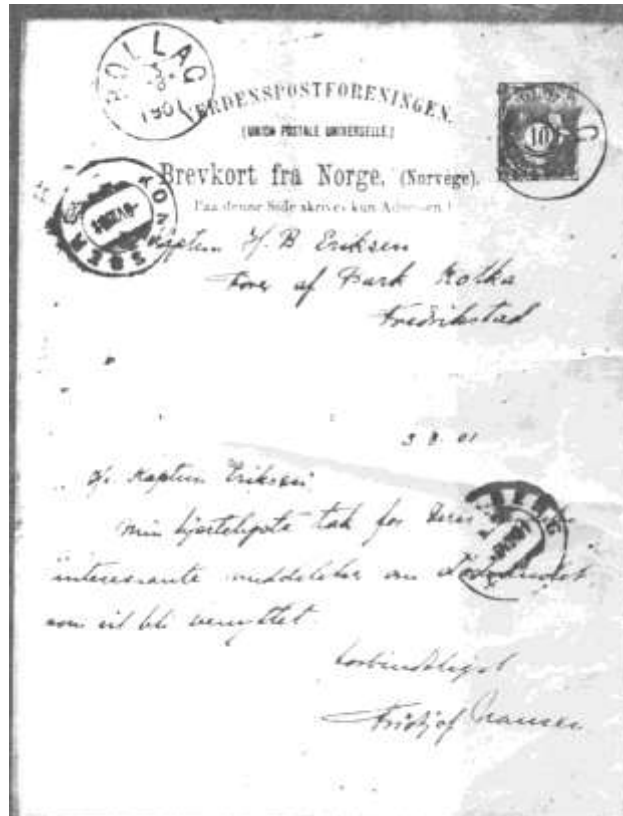 ROLLAG
3
8
1901
VERDENSPOSTFORENINGEN.
(UNION POSTALE UNIVERSELLE.)
10
Brevkort fra Norge. (Norvège).
Paa denne Side skrives kun Adressen!
KON
Kaptein H. B Eriksen
Fører af Bark Kolka
Fredrikstad
3 8 01
Hr. Kaptein Eriksen
Min hjerteligste tak for Deres
BERG
interessante meddelelser om
som vil bli benyttet
Forbindtligst
Fridtjof Nansen